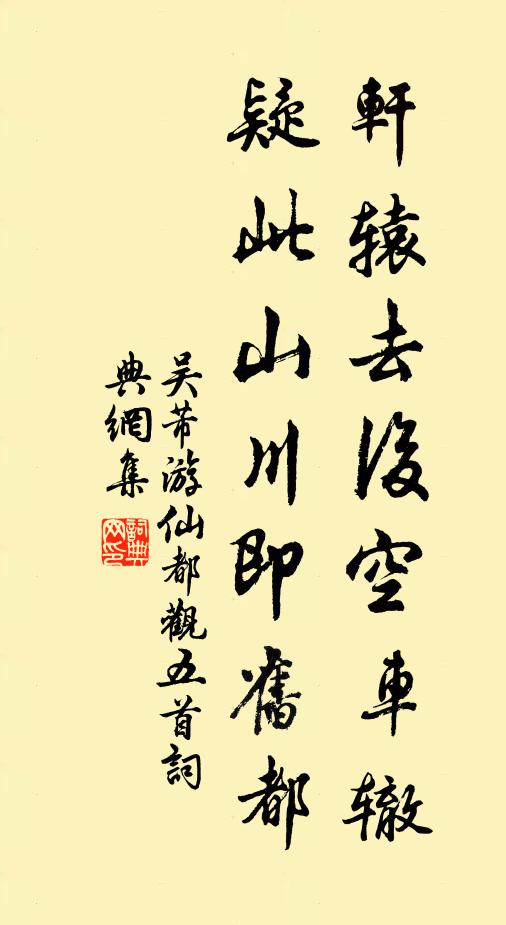 軒辕去後空車辙
疑此山川即舊都
吴芾游仙都觀五首詞
典網集
詞典網印